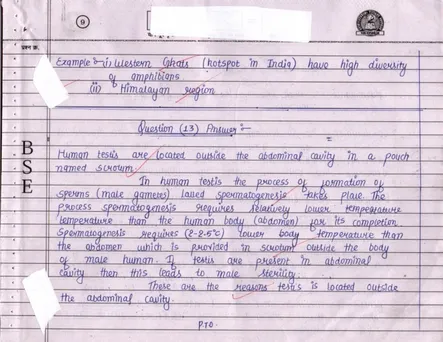 9
प्रश्न क्र.
Example :- i) Western Ghats (hotspot in India) have high diversity
of amphibians
(ii) Himalayan region
Question (13) Answer :-
=
Human testis are located outside the abdominal cavity in a pouch
named scrotum.
In human testis the process of formation of
sperms (male gametes) called spermatogenesis takes place. The
process spermatogenesis requires relatively lower temperature
temperature than the human body (abdomen) for its completion.
Spermatogenesis requires (2-2.5°C) lower body temperature than
the abdomen which is provided in scrotum outside the body
of male human. If testis are present in abdominal
cavity then this leads to male sterility.
These are the reasons testis is located outside
the abdominal cavity.
P.T.O.
B
S
E